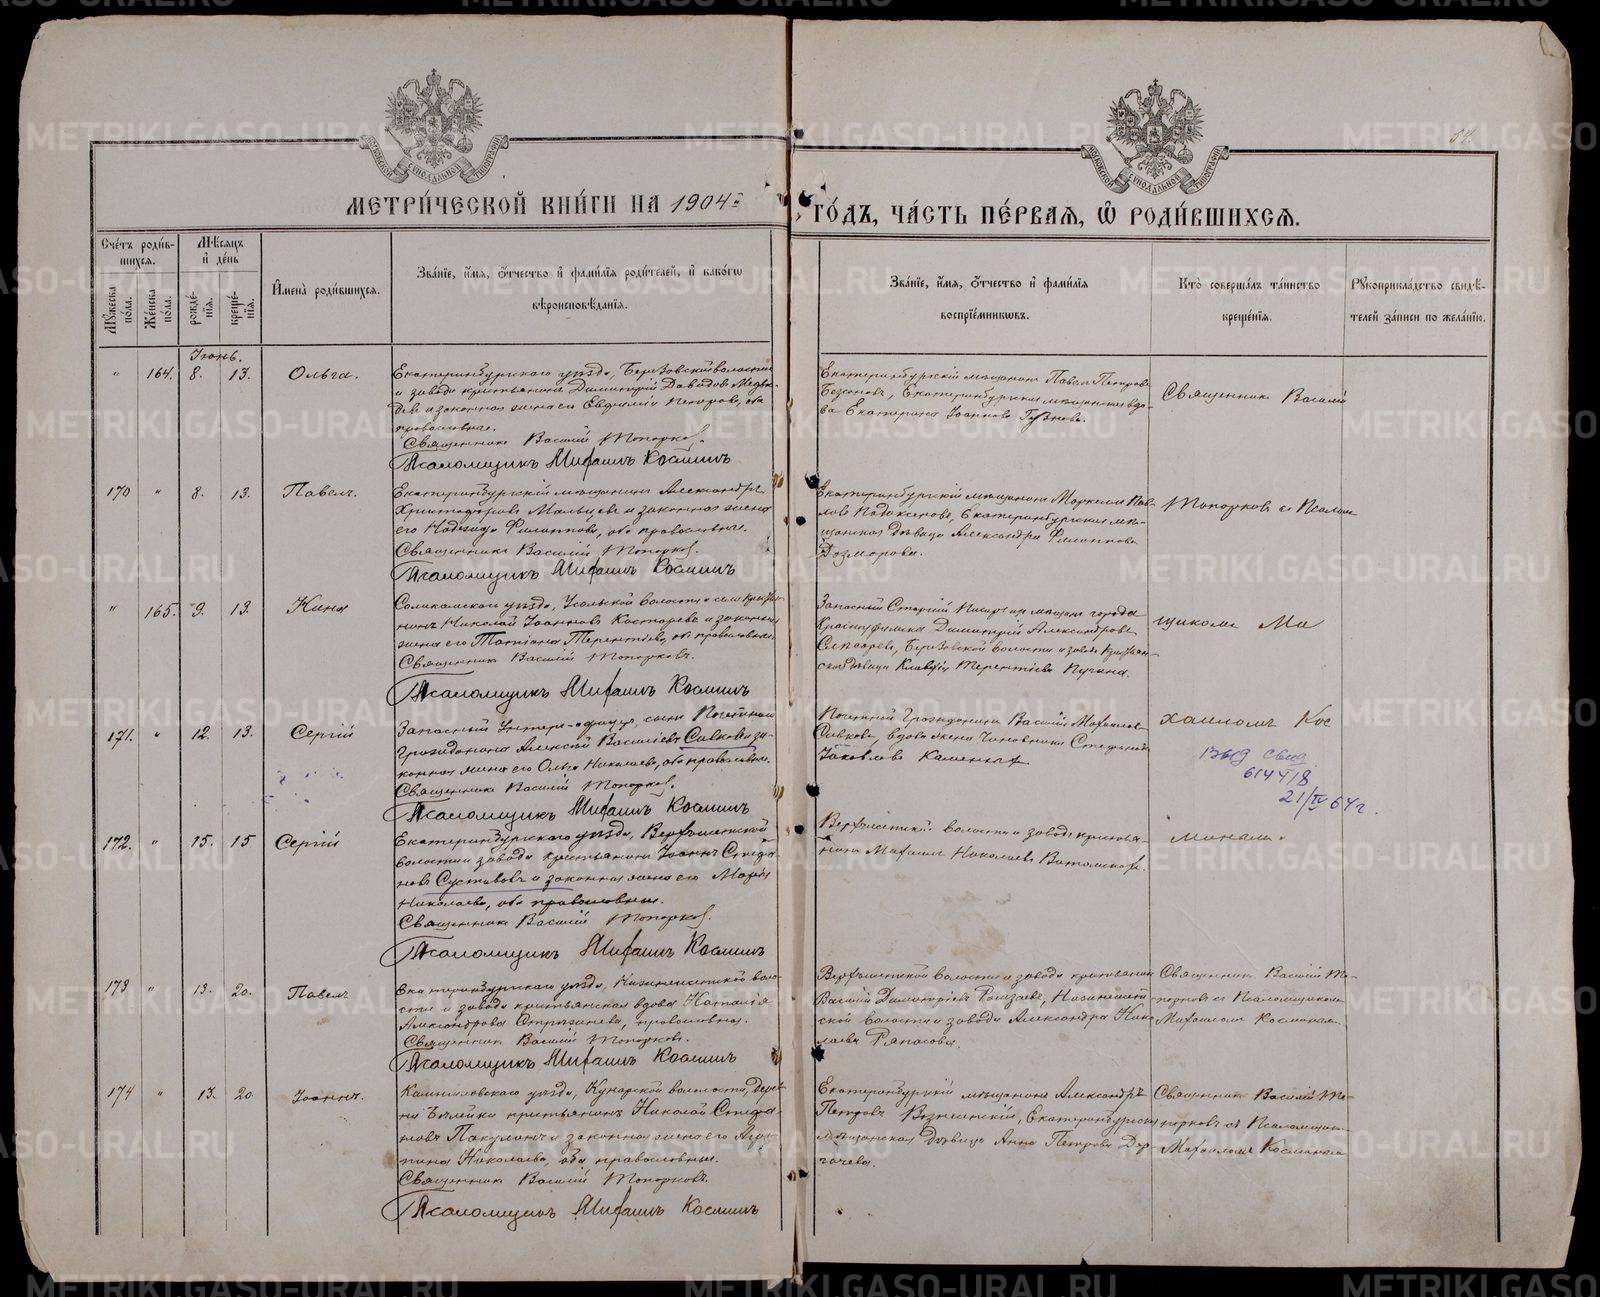 54.
МЕТРИ́ЧЕСКОЙ КНИ́ГИ НА 1904й
ГО́ДЪ, ЧА́СТЬ ПЕ́РВАЯ, Ѡ РОДИ́ВШИХСЯ.
Сче́тъ роди́в-
шихся.
Мѣ́сяцъ
и҆ де́нь
Мꙋ́жеска по́ла.
Же́нска по́ла.
рожде́-нїя.
креще́-нїя.
И҆мена̀ роди́вшихся.
Зва́нїе, и҆́мя, ѻ҆́тчество и҆ фами́лїя роди́телей, и҆ како́гѡ
вѣроисповѣ́данїя.
Зва́нїе, и҆́мя, ѻ҆́тчество и҆ фами́лїя
воспрїе́мникѡвъ.
Кто̀ соверша́лъ та́инство
креще́нїя.
Рꙋкоприкла́дство свидѣ́-
телей за́писи по жела́нїю.
Іюнь.
" 164. 8. 13. Ольга.
Екатеринбургскаго уѣзда, Березовской волости
и завода крестьянинъ Димитрій Давидовъ Медвѣ-
девъ и законная жена его Евдокія Петрова, оба
православные.
Священникъ Василій Топорковъ.
Псаломщикъ Михаилъ Косминъ
Екатеринбургскій мѣщанинъ Павелъ Петровъ
Екатеринбургская мѣщанская вдо-
ва Екатерина Іоаннова
Священникъ Василій
170 " 8. 13. Павелъ.
Екатеринбургскій мѣщанинъ Александръ
Христофоровъ Мальцевъ и законная жена
его Надежда Филиппова, оба православные.
Священникъ Василій Топорковъ.
Псаломщикъ Михаилъ Косминъ
Екатеринбургскій мѣщанинъ Маркеллъ Пав-
ловъ Екатеринбургская мѣ-
щанская дѣвица Александра Филиппова
Дозморова.
Топорковъ съ Псалом
" 165. 9. 13. Нина
Соликамскаго уѣзда, Усольской волости и села
Николай Іоанновъ Костаревъ и законная
жена его Татіана Терентіева, оба православные.
Священникъ Василій Топорковъ.
Псаломщикъ Михаилъ Косминъ
Запасный Старшій Писарь изъ мѣщанъ города
Красноуфимска Димитрій Александровъ
Березовской волости и завода
дѣвица Клавдія Терентіева Пугина.
щикомъ Ми
171. " 12. 13. Сергій
Запасный Унтеръ-офицеръ, сынъ Почетнаго
Гражданина Алексѣй Василіевъ Савковъ и за-
конная жена его Ольга Николаева, оба православные.
Священникъ Василій Топорковъ.
Псаломщикъ Михаилъ Косминъ
Почетный Гражданинъ Василій Михайловъ
Савковъ, вдова жена Чиновника Стефанида
Іаковлева
хаиломъ Кос
выд свид
614418
21/IV 64 г.
172. " 15. 15 Сергій
Екатеринбургскаго уѣзда, Верхъисетской
волости и завода крестьянинъ Іоаннъ Стефа-
новъ Суставовъ и законная жена его Марія
Николаева, оба православные.
Священникъ Василій Топорковъ.
Псаломщикъ Михаилъ Косминъ
Верхъисетской волости и завода крестья-
нинъ Михаилъ Николаевъ
минымъ.
173 " 13. 20. Павелъ
Екатеринбургскаго уѣзда, Нижнеисетской воло-
сти и завода крестьянская вдова Наталія
Александрова православная.
Священникъ Василій Топорковъ.
Псаломщикъ Михаилъ Косминъ
Верхъисетской волости и завода крестьянинъ
Василій Димитріевъ Нижнеисет-
ской волости и завода Александра Нико-
лаева Ряпасова.
Священникъ Василій То-
порковъ съ Псаломщикомъ
Михаиломъ Косминымъ
174 " 13. 20 Іоаннъ.
Камышловскаго уѣзда, Кунарской волости, дерев-
ни крестьянинъ Николай Стефа-
новъ и законная жена его Агрип-
пина Николаева, оба православные.
Священникъ Василій Топорковъ.
Псаломщикъ Михаилъ Косминъ
Екатеринбургскій мѣщанинъ Александръ
Петровъ Вознесенскій, Екатеринбургская
мѣщанская дѣвица Анна Петрова Дер-
гачева.
Священникъ Василій То-
порковъ съ Псаломщи-
Михаиломъ Косминымъ
METRIKI.GASO-URAL.RU